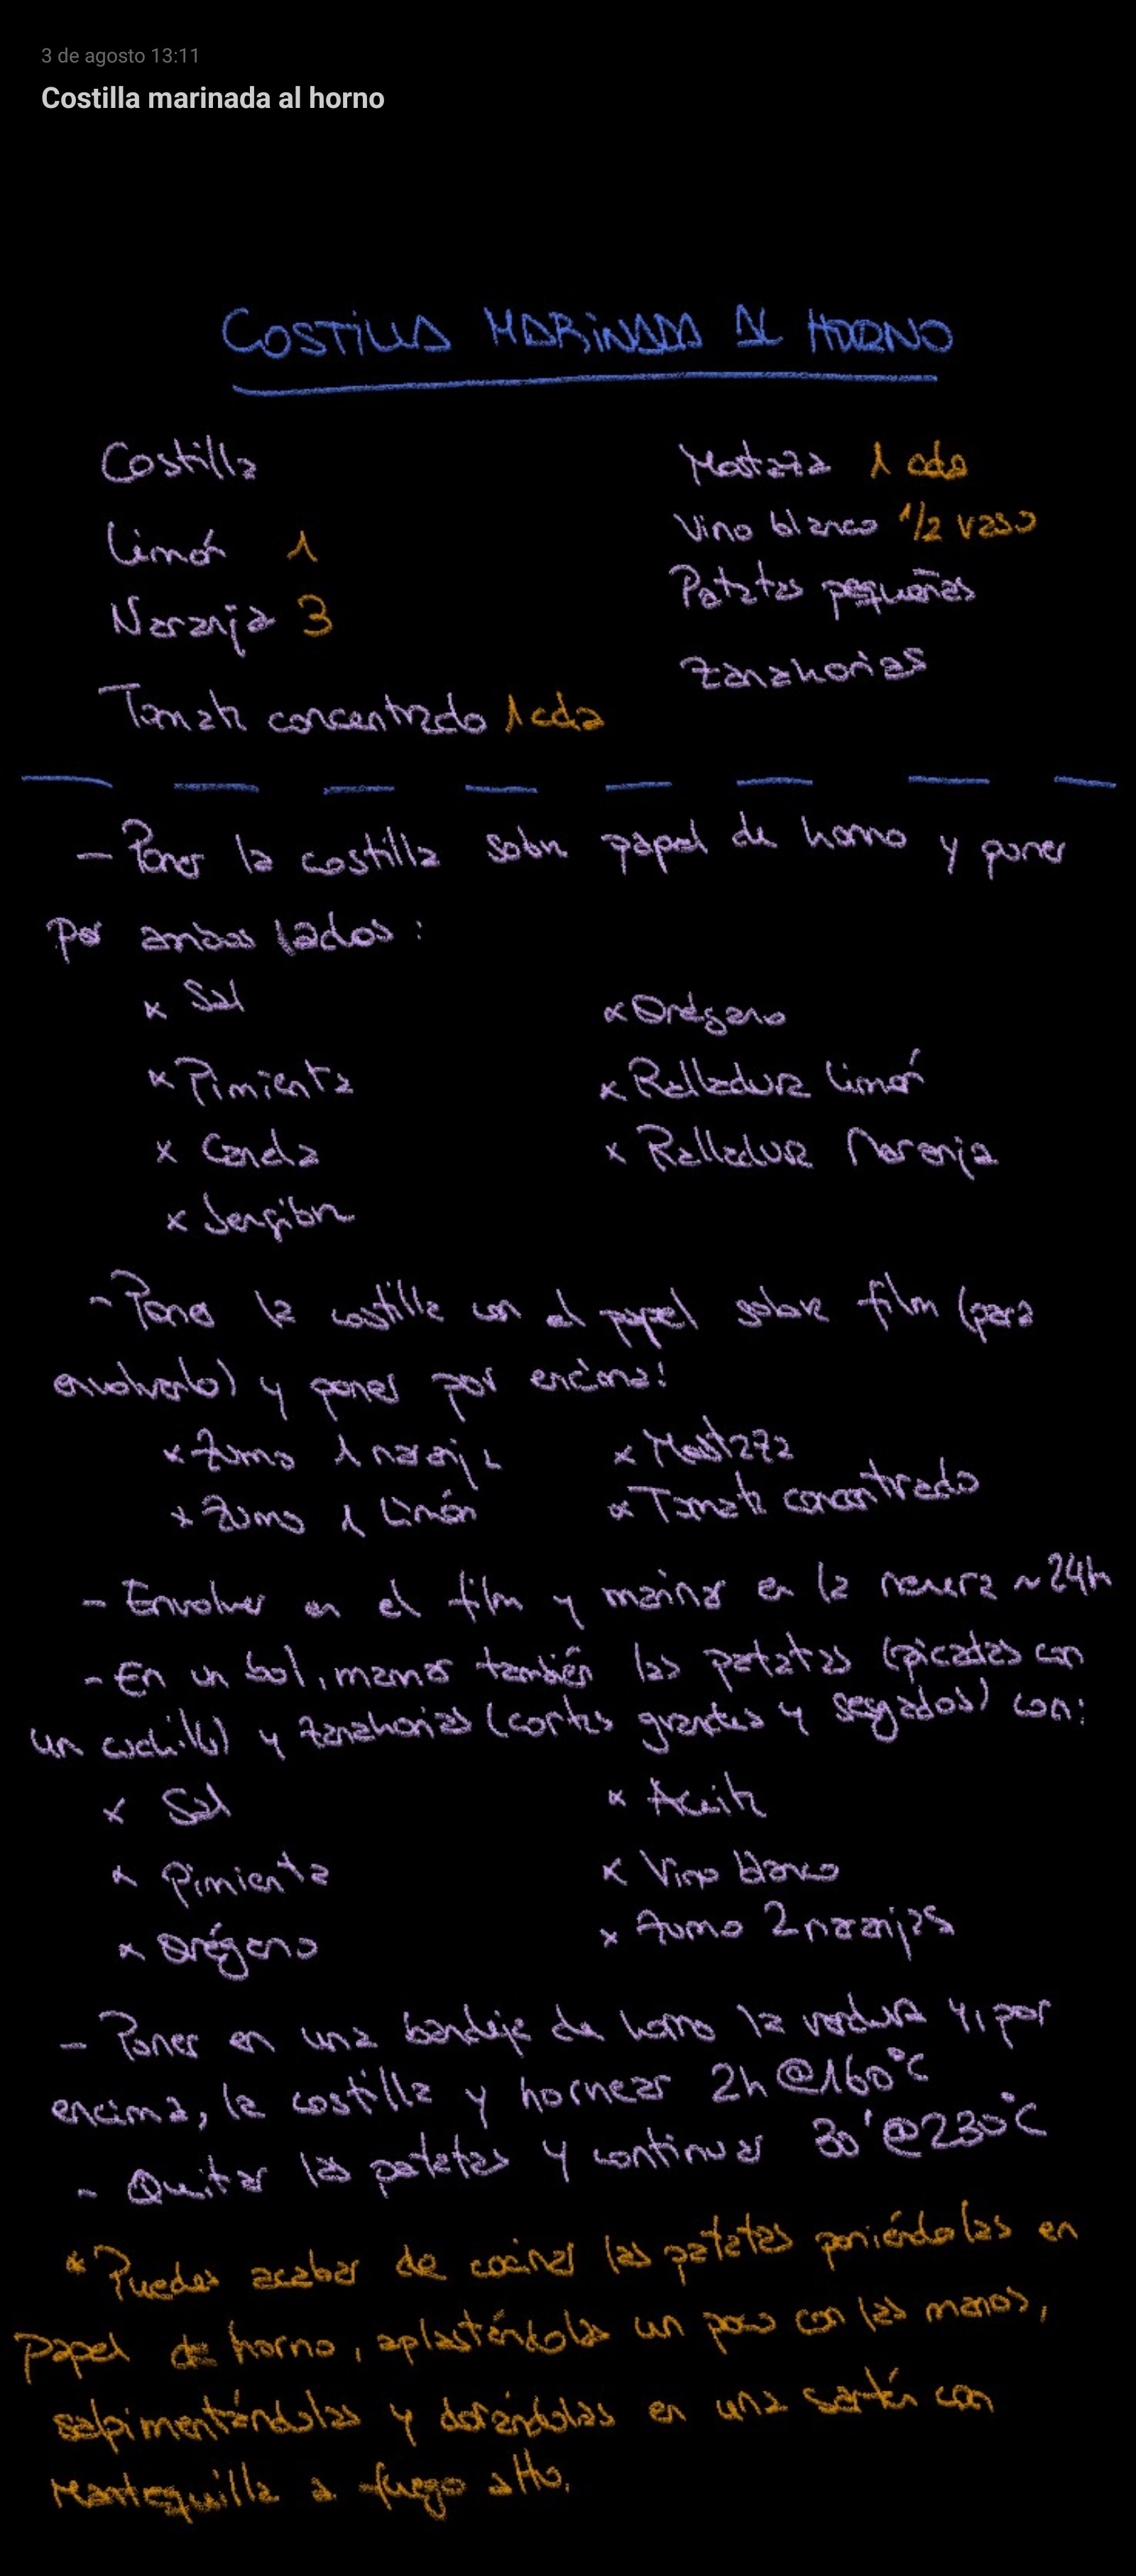 3 de agosto 13:11
Costilla marinada al horno
COSTILLA MARINADA AL HORNO
Costilla
Limón 1
Naranja 3
Tomate concentrado 1 cda
Mostaza 1 cda
Vino blanco 1/2 vaso
Patatas pequeñas
Zanahorias
- Poner la costilla sobre papel de horno y poner
por ambos lados:
x Sal
x Pimienta
x Canela
x Jengibre
x Orégano
x Ralladura Limón
x Ralladura Naranja
- Poner la costilla con el papel sobre film (para
envolverlo) y poner por encima:
x Zumo 1 naranja
x Zumo 1 Limón
x Mostaza
x Tomate concentrado
- Envolver en el film y marinar en la nevera ~24h
- En un bol, marinar también las patatas (picadas con
un cuchillo) y zanahorias (cortes grandes y sesgados) con:
x Sal
x Pimienta
x Orégano
x Aceite
x Vino blanco
x Zumo 2 naranjas
- Poner en una bandeja de horno la verdura y, por
encima, la costilla y hornear 2h @160°C
- Quitar las patatas y continuar 30' @230°C
* Puedes acabar de cocinar las patatas poniéndolas en
papel de horno, aplastándolas un poco con las manos,
salpimentándolas y dorándolas en una sartén con
Mantequilla a fuego alto.